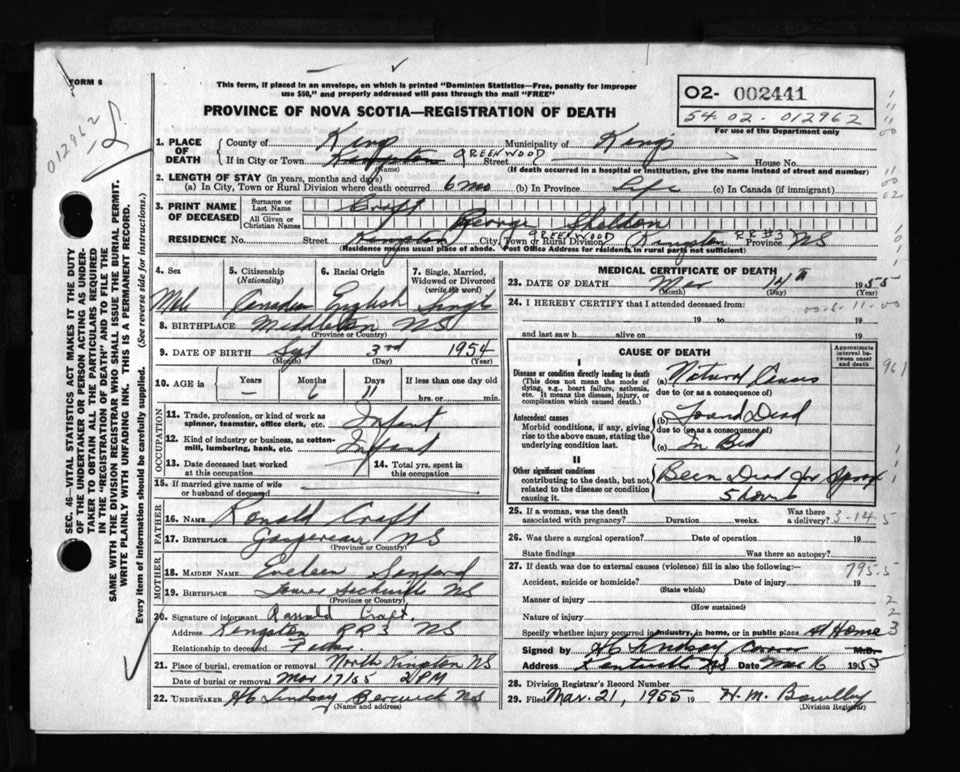 FORM 6
This form, if placed in an envelope, on which is printed "Dominion Statistics—Free, penalty for improper
use $50," and properly addressed will pass through the mail "FREE"
PROVINCE OF NOVA SCOTIA—REGISTRATION OF DEATH
02- 002441
54-02-012962
For use of the Department only
012962
1. PLACE OF DEATH
County of Kings Municipality of Kings
If in City or Town Kingston GREENWOOD Street House No.
(Name) (If death occurred in a hospital or institution, give its name instead of street and number)
2. LENGTH OF STAY (in years, months and days)
(a) In City, Town or Rural Division where death occurred 6 mo (b) In Province Life (c) In Canada (if immigrant)
3. PRINT NAME OF DECEASED
Surname or Last Name Craft
All Given or Christian Names George Sheldon
RESIDENCE No. Street Kingston City, Town or Rural Division GREENWOOD Kingston RR#3 Province NS
(Residence means usual place of abode. Post Office Address for residents in rural parts not sufficient)
4. Sex Male
5. Citizenship (Nationality) Canadian
6. Racial Origin English
7. Single, Married, Widowed or Divorced (write the word) Single
8. BIRTHPLACE Middleton NS
(Province or Country)
9. DATE OF BIRTH Sept 3rd 1954
(Month) (Day) (Year)
10. AGE in Years — Months 6 Days 11 If less than one day old hrs. or min.
OCCUPATION
11. Trade, profession, or kind of work as spinner, teamster, office clerk, etc. Infant
12. Kind of industry or business, as cotton-mill, lumbering, bank, etc. Infant
13. Date deceased last worked at this occupation 14. Total yrs. spent in this occupation
15. If married give name of wife or husband of deceased
FATHER
16. NAME Ronald Craft
17. BIRTHPLACE Gaspereau NS
(Province or Country)
MOTHER
18. MAIDEN NAME Eveleen
19. BIRTHPLACE Lower Sackville NS
(Province or Country)
20. Signature of informant Ronald Craft
Address Kingston RR3 NS
Relationship to deceased Father
21. Place of burial, cremation or removal North Kingston NS
Date of burial or removal Mar 17/55 2 PM
22. UNDERTAKER H6 Lindsay Berwick NS
(Name and address)
MEDICAL CERTIFICATE OF DEATH
23. DATE OF DEATH Mar 14th 1955
(Month) (Day) (Year)
24. I HEREBY CERTIFY that I attended deceased from:
19 to 19
and last saw h alive on 19
CAUSE OF DEATH
Approximate interval between onset and death
I
Disease or condition directly leading to death
(This does not mean the mode of dying, e.g., heart failure, asthenia, etc. It means the disease, injury, or complication which caused death.)
(a) Natural Causes
due to (or as a consequence of)
Antecedent causes
Morbid conditions, if any, giving rise to the above cause, stating the underlying condition last.
(b) Found Dead
due to (or as a consequence of)
(c) In Bed
II
Other significant conditions
contributing to the death, but not related to the disease or condition causing it.
Been Dead for Approx
5 hours
25. If a woman, was the death associated with pregnancy? Duration weeks. Was there a delivery?
3-14-5
26. Was there a surgical operation? Date of operation 19
State findings Was there an autopsy?
27. If death was due to external causes (violence) fill in also the following:—
795.5
Accident, suicide or homicide? Date of injury 19
(State which)
Manner of injury
(How sustained)
Nature of injury
Specify whether injury occurred in industry, in home, or in public place At Home
Signed by H6 Lindsay Coroner M.D.
Address Kentville NS Date Mar 16 1955
28. Division Registrar's Record Number
29. Filed Mar. 21, 1955 19 H. M. Bowlby
(Division Registrar)
SEC. 46—VITAL STATISTICS ACT MAKES IT THE DUTY
OF THE UNDERTAKER OR PERSON ACTING AS UNDERTAKER TO OBTAIN ALL THE PARTICULARS REQUIRED
IN THE "REGISTRATION OF DEATH" AND TO FILE THE
SAME WITH THE DIVISION REGISTRAR WHO SHALL ISSUE THE BURIAL PERMIT.
WRITE PLAINLY WITH UNFADING INK. THIS IS A PERMANENT RECORD.
Every item of information should be carefully supplied. (See reverse side for instructions.)